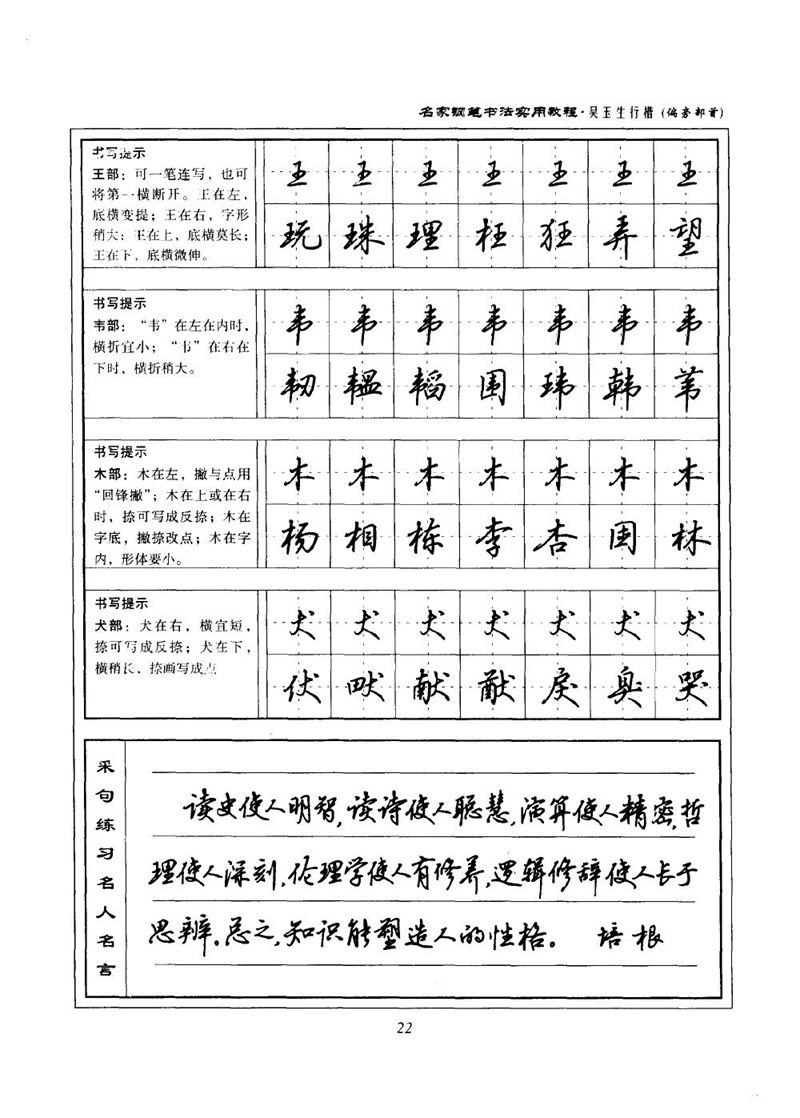 名家钢笔书法实用教程·吴玉生行楷（偏旁部首）
书写提示
王部：可一笔连写，也可
将第一横断开。王在左，
底横变提；王在右，字形
稍大；王在上，底横莫长；
王在下，底横微伸。
王 王 王 王 王 王 王
玩 珠 理 枉 狂 弄 望
书写提示
韦部：“韦”在左在内时，
横折宜小；“韦”在右在
下时，横折稍大。
韦 韦 韦 韦 韦 韦 韦
韧 韫 韬 围 玮 韩 苇
书写提示
木部：木在左，撇与点用
“回锋撇”；木在上或在右
时，捺可写成反捺；木在
字底，撇捺改点；木在字
内，形体要小。
木 木 木 木 木 木 木
杨 相 栋 李 杏 困 林
书写提示
犬部：犬在右，横宜短，
捺可写成反捺；犬在下，
横稍长，捺画写成点
犬 犬 犬 犬 犬 犬 犬
伏 畎 献 猷 戾 臾 哭
采句练习名人名言
读史使人明智，读诗使人聪慧，演算使人精密，哲
理使人深刻，伦理学使人有修养，逻辑修辞使人长于
思辨。总之，知识能塑造人的性格。 培根
22